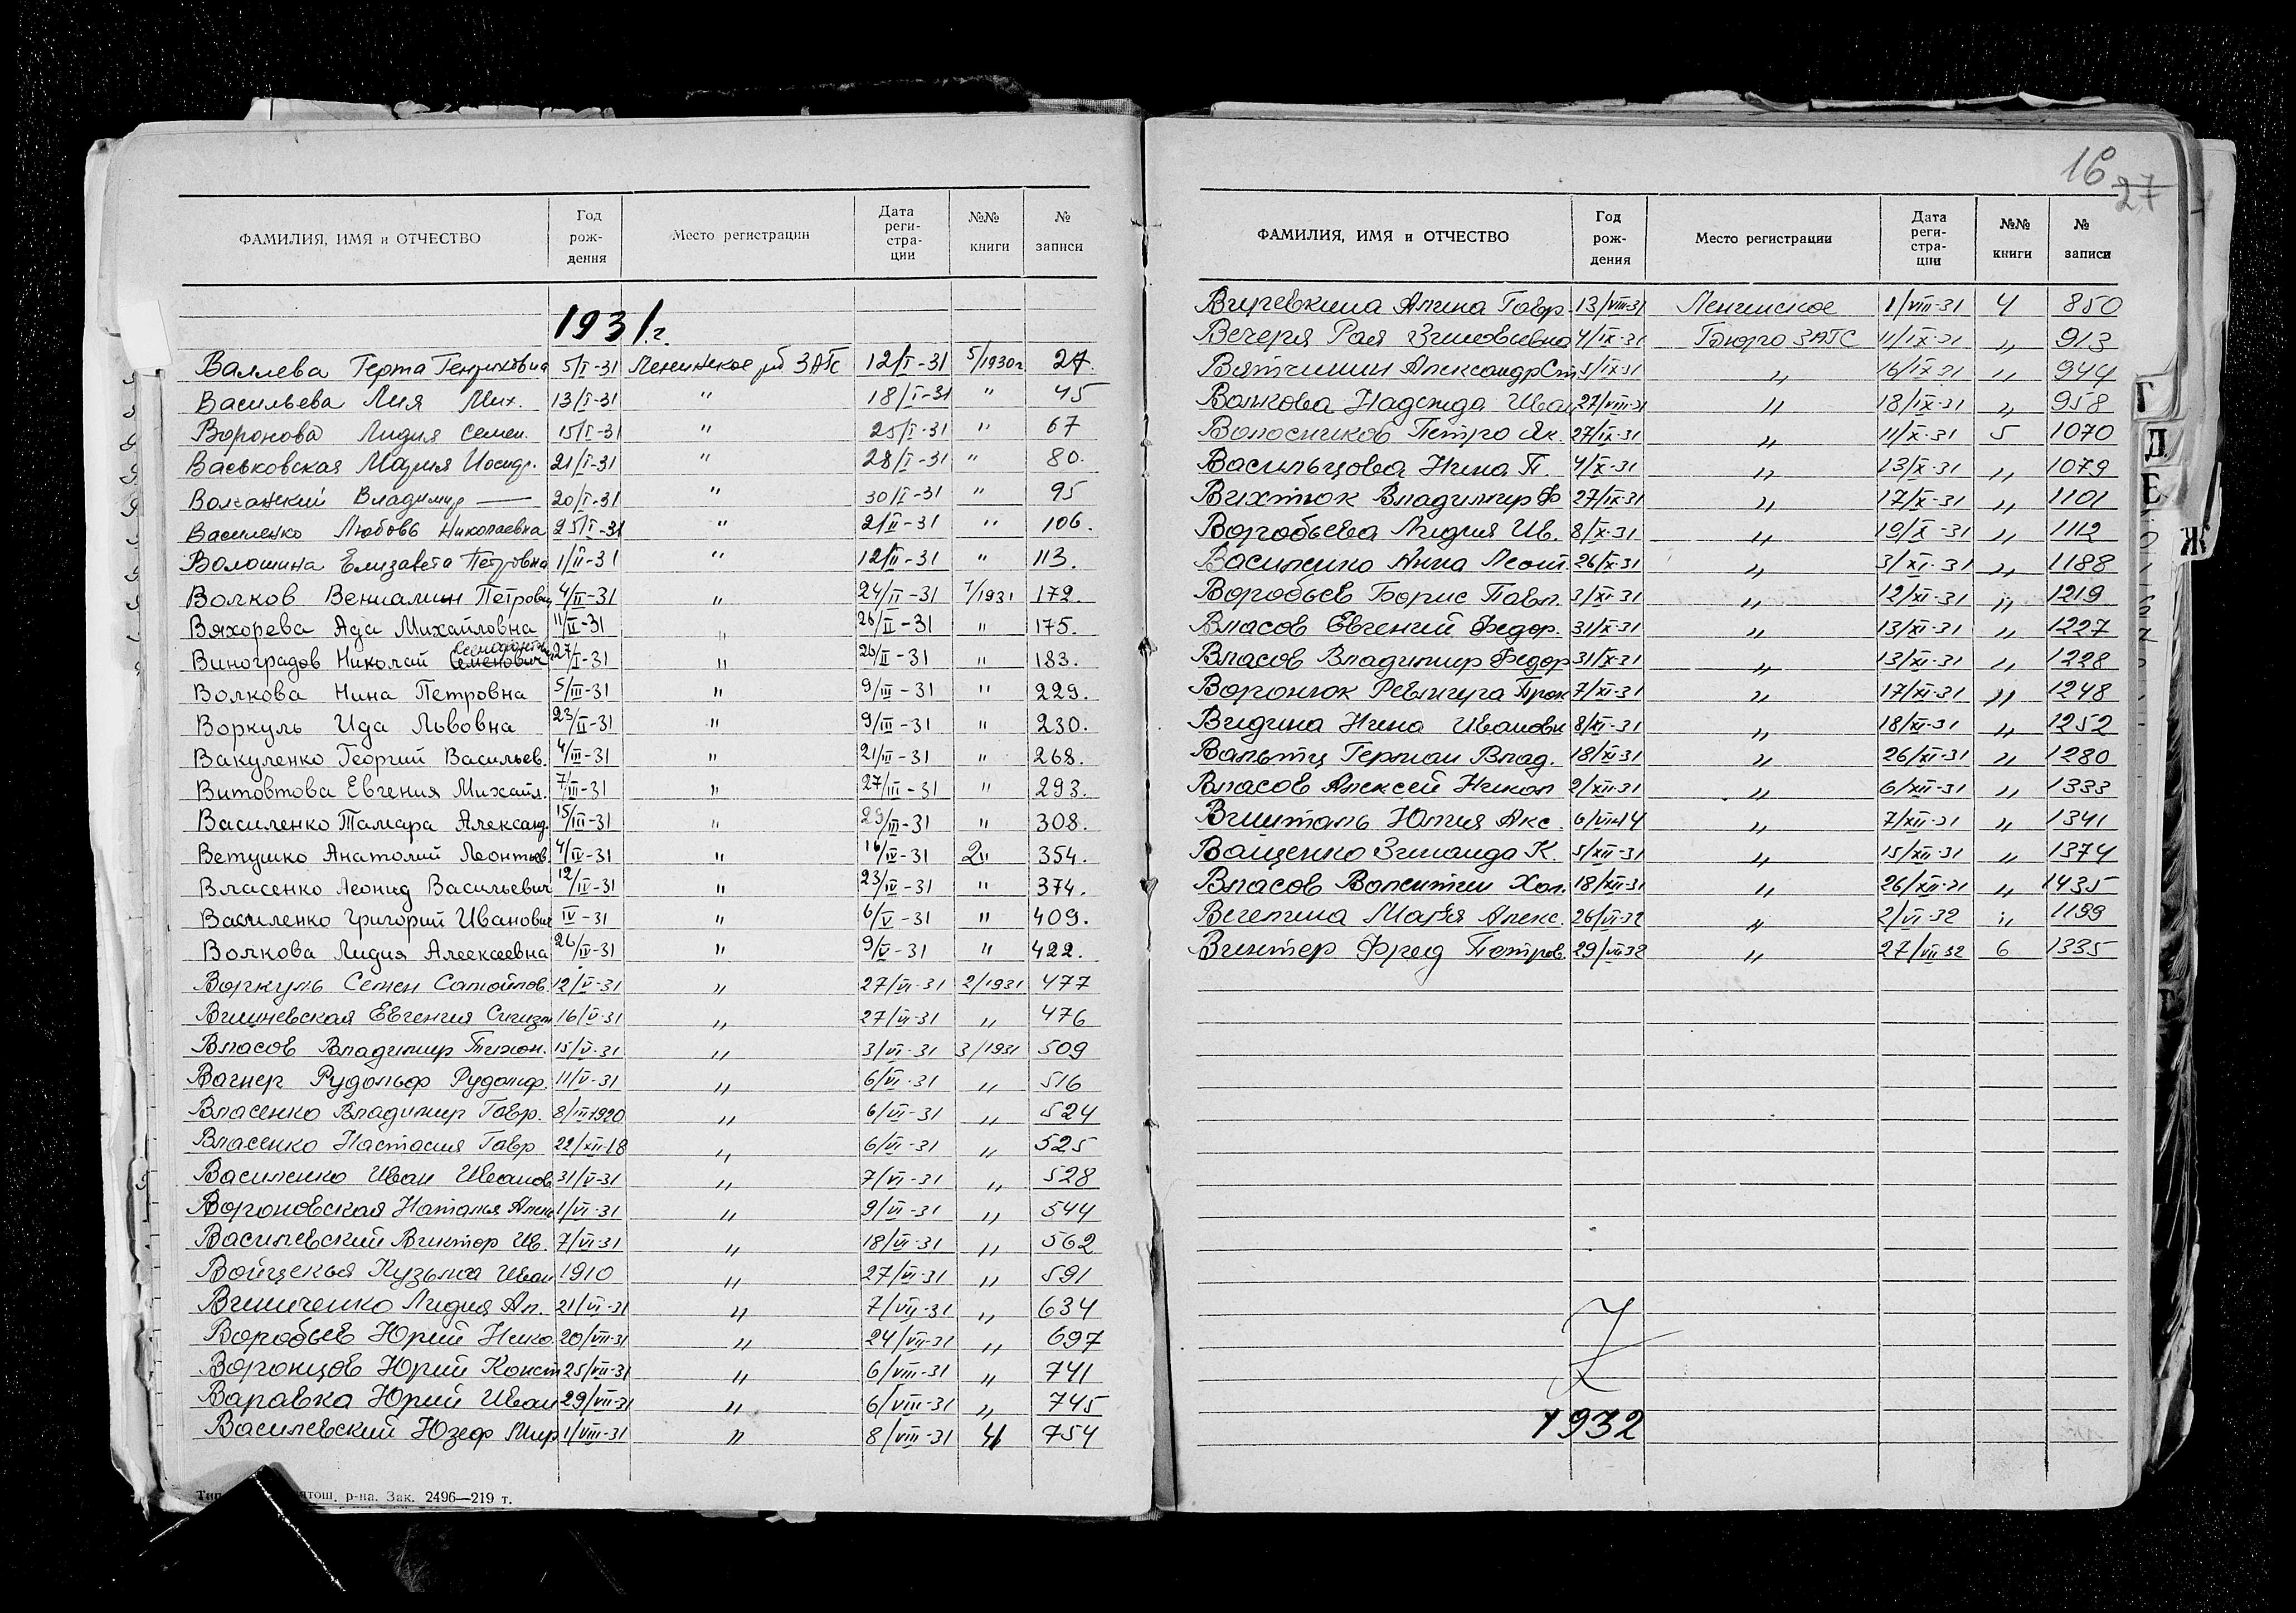 ФАМИЛИЯ, ИМЯ и ОТЧЕСТВО Год рож-дения Место регистрации Дата реги-стра-ции №№ книги № записи
1931 г.
Валлева Герта Генриховна 5/I-31 Ленинское рб ЗАГС 12/I-31 5/1930г 27.
Васильева Лия Мих. 13/I-31 " 18/I-31 " 45
Воронова Лидия Семен. 15/I-31 " 25/I-31 " 67
Васьковская Мария Иосиф. 21/I-31 " 28/I-31 " 80.
Волчанский Владимир — 20/I-31 " 30/I-31 " 95
Василенко Любовь Николаевна 25/I-31 " 2/II-31 " 106.
Волошина Елизавета Петровна 1/II-31 " 12/II-31 " 113.
Волков Вениамин Петрович 4/II-31 " 24/II-31 1/1931 172.
Вяхорева Ада Михайловна 11/II-31 " 26/II-31 " 175.
Виноградов Николай Семенович 27/I-31 " 26/II-31 " 183.
Волкова Нина Петровна 5/III-31 " 9/III-31 " 229.
Воркуль Ида Львовна 23/II-31 " 9/III-31 " 230.
Вакуленко Георгий Васильев. 4/III-31 " 21/III-31 " 268.
Витовтова Евгения Михайл. 7/III-31 " 27/III-31 " 293.
Василенко Тамара Александ. 15/III-31 " 29/III-31 " 308.
Ветушко Анатолий Леонтьев. 4/IV-31 " 16/IV-31 2" 354.
Власенко Леонид Васильевич 12/IV-31 " 23/IV-31 " 374.
Василенко Григорий Иванович IV-31 " 6/V-31 " 409.
Волкова Лидия Алексеевна 26/IV-31 " 9/V-31 " 422.
Воркуль Семен Самойлов. 12/V-31 " 27/VI-31 2/1931 477
Вишневская Евгения Сигизм 16/V-31 " 27/VI-31 " 476
Власов Владимир Тихон. 15/V-31 " 3/VI-31 3/1931 509
Вагнер Рудольф Рудольф. 11/V-31 " 6/VI-31 " 516
Власенко Владимир Гавр. 8/III1920 " 6/VI-31 " 524
Власенко Настасия Гавр 22/XII-18 " 6/VI-31 " 525
Василенко Иван Иванов 31/V-31 " 7/VI-31 " 528
Вороновская Наталья Алек 1/VI-31 " 9/VI-31 " 544
Василевский Виктор Ив. 7/VI-31 " 18/VI-31 " 562
Кузьма Иван 1910 " 27/VI-31 " 591
Винниченко Лидия Ап. 21/VI-31 " 7/VII-31 " 634
Воробьев Юрий Нико. 20/VII-31 " 24/VII-31 " 697
Воронцов Юрий Конст 25/VII-31 " 6/VIII-31 " 741
Варавка Юрий Иван 29/VII-31 " 6/VIII-31 " 745
Василевский Юзеф Мир 1/VIII-31 " 8/VIII-31 4 754
р-на. Зак. 2496—219 т.
16
27
ФАМИЛИЯ, ИМЯ и ОТЧЕСТВО Год рож-дения Место регистрации Дата реги-стра-ции №№ книги № записи
Алина Гавр. 13/VIII-31 Ленинское 1/VIII-31 4 850
Вечеря Рая Зиновьевна 4/IX-31 Бюро ЗАГС 11/IX-31 " 913
Вятчинин Александр Ст 5/IX-31 " 16/IX-31 " 944
Волкова Надежда Иван 27/VIII-31 " 18/IX-31 " 958
Волосников Петро Як. 27/IX-31 " 11/X-31 5 1070
Васильцова Нина П. 4/X-31 " 13/X-31 " 1079
Вихтюк Владимир Ф 27/IX-31 " 17/X-31 " 1101
Воробьева Лидия Ив. 8/X-31 " 19/X-31 " 1112
Василенко Анна Леонт 26/X-31 " 3/XI-31 " 1188
Воробьев Борис Павл. 3/XI-31 " 12/XI-31 " 1219
Власов Евгений Федор. 31/X-31 " 13/XI-31 " 1227
Власов Владимир Федор 31/X-31 " 13/XI-31 " 1228
Воронюк Ревмира Прок 7/XI-31 " 17/XI-31 " 1248
Видина Нина Ивановн 8/XI-31 " 18/XI-31 " 1252
Вальтц Герман Влад. 18/XI-31 " 26/XI-31 " 1280
Власов Алексей Никол 2/XII-31 " 6/XII-31 " 1333
Вишталь Юлия Акс. 6/VII-14 " 7/XII-31 " 1341
Ващенко Зинаида К. 5/XII-31 " 15/XII-31 " 1374
Власов Валентин Хол. 18/XII-31 " 26/XII-31 " 1435
Вегелина Мария Алекс. 26/VI-32 " 2/VI-32 " 1199
Винтер Фред Петров. 29/VII32 " 27/VII-32 6 1335
1932
Г
Д
Е
Ж